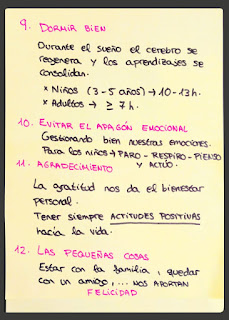 9. DORMIR BIEN
Durante el sueño el cerebro se
regenera y los aprendizajes se
consolidan.
* Niños (3-5 años) → 10-13h.
* Adultos → ≥ 7h.
10. EVITAR EL APAGÓN EMOCIONAL
Gestionando bien nuestras emociones.
Para los niños → PARO - RESPIRO - PIENSO
Y ACTÚO.
11. AGRADECIMIENTO
La gratitud nos da el bienestar
personal.
Tener siempre ACTITUDES POSITIVAS
hacia la vida.
12. LAS PEQUEÑAS COSAS
Estar con la familia, quedar
con un amigo,... NOS APORTAN
FELICIDAD